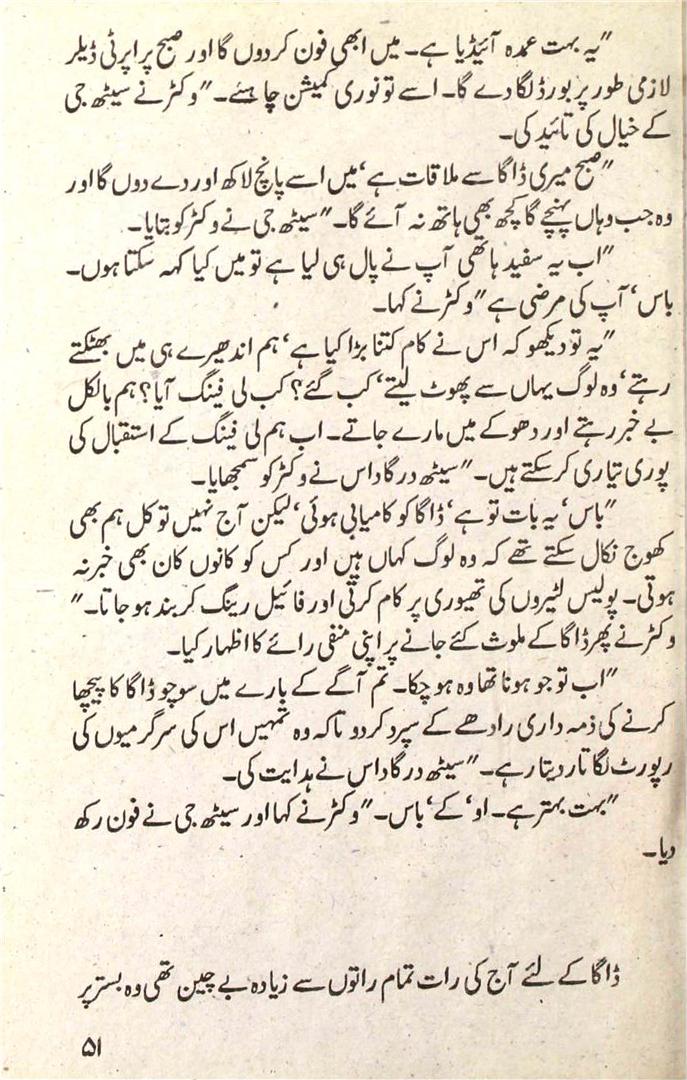 "یہ بہت عمدہ آئیڈیا ہے۔ میں ابھی فون کردوں گا اور صبح پراپرٹی ڈیلر
لازمی طور پر بورڈ لگا دے گا۔ اسے تو نوری کمیشن چاہئے۔" وکٹر نے سیٹھ جی
کے خیال کی تائید کی۔
"صبح میری ڈاگا سے ملاقات ہے' میں اسے پانچ لاکھ اور دے دوں گا اور
وہ جب وہاں پہنچے گا کچھ بھی ہاتھ نہ آئے گا۔" سیٹھ جی نے وکٹر کو بتایا۔
"اب یہ سفید ہاتھی آپ نے پال ہی لیا ہے تو میں کیا کہہ سکتا ہوں۔
باس' آپ کی مرضی ہے" وکٹر نے کہا۔
"یہ تو دیکھو کہ اس نے کام کتنا بڑا کیا ہے' ہم اندھیرے ہی میں بھٹکتے
رہتے' وہ لوگ یہاں سے پھوٹ لیتے' کب گئے؟ کب لی فینگ آیا؟ ہم بالکل
بے خبر رہتے اور دھوکے میں مارے جاتے۔ اب ہم لی فینگ کے استقبال کی
پوری تیاری کرسکتے ہیں۔" سیٹھ درگاداس نے وکٹر کو سمجھایا۔
"باس' یہ بات تو ہے' ڈاگا کو کامیابی ہوئی' لیکن آج نہیں تو کل ہم بھی
کھوج نکال سکتے تھے کہ وہ لوگ کہاں ہیں اور کس کو کانوں کان بھی خبر نہ
ہوتی۔ پولیس لٹیروں کی تھیوری پر کام کرتی اور فائیل رینگ کر بند ہو جاتا۔"
وکٹر نے پھر ڈاگا کے ملوث کئے جانے پر اپنی منفی رائے کا اظہار کیا۔
"اب تو جو ہونا تھا وہ ہو چکا۔ تم آگے کے بارے میں سوچو ڈاگا کا پیچھا
کرنے کی ذمہ داری رادھے کے سپرد کردو تاکہ وہ تمہیں اس کی سرگرمیوں کی
رپورٹ لگاتار دیتا رہے۔" سیٹھ درگاداس نے ہدایت کی۔
"بہت بہتر ہے۔ او' کے' باس۔" وکٹر نے کہا اور سیٹھ جی نے فون رکھ
دیا۔
ڈاگا کے لئے آج کی رات تمام راتوں سے زیادہ بے چین تھی وہ بستر پر
۵۱